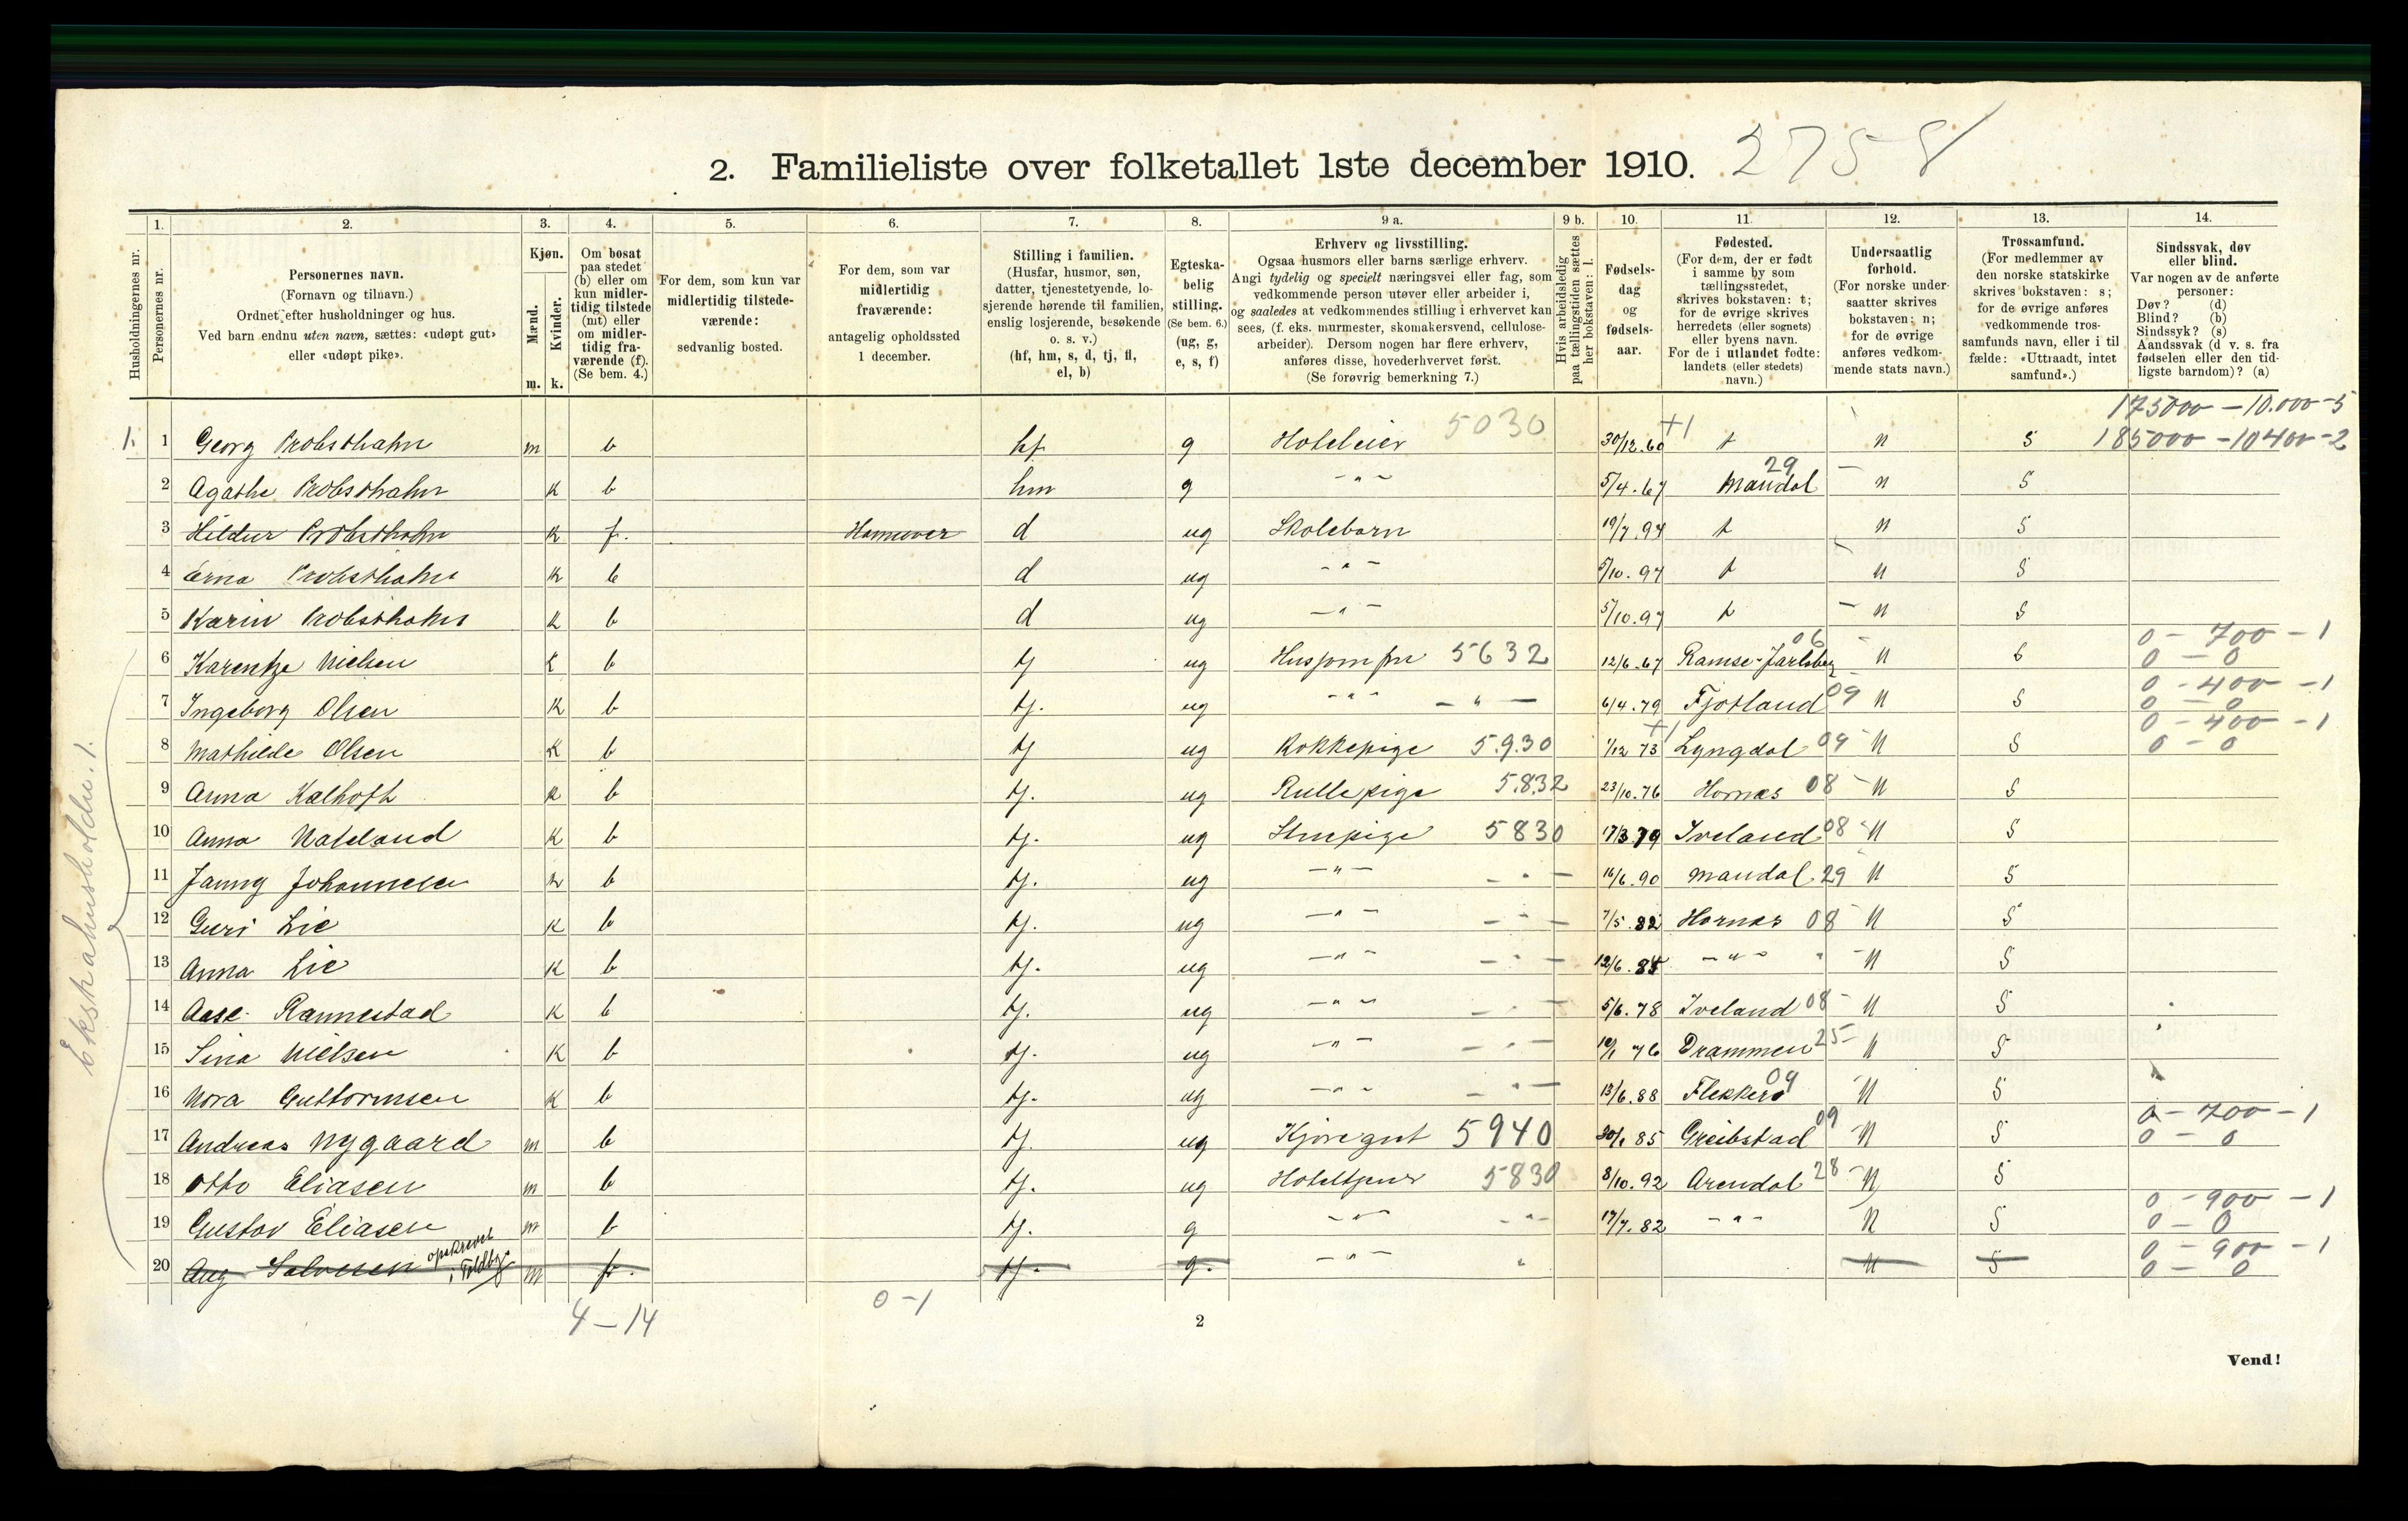 2. Familieliste over folketallet 1ste december 1910. 2758
1. 2. 3. 4. 5. 6. 7. 8. 9 a. 9 b. 10. 11. 12. 13. 14.
Husholdningernes nr.
Personernes nr.
Personernes navn.
(Fornavn og tilnavn.)
Ordnet efter husholdninger og hus.
Ved barn endnu uten navn, sættes: «udøpt gut»
eller «udøpt pike».
Kjøn.
Mænd.
Kvinder.
m. k.
Om bosat
paa stedet
(b) eller om
kun midler-
tidig tilstede
(mt) eller
om midler-
tidig fra-
værende (f).
(Se bem. 4.)
For dem, som kun var
midlertidig tilstede-
værende:
sedvanlig bosted.
For dem, som var
midlertidig
fraværende:
antagelig opholdssted
1 december.
Stilling i familien.
(Husfar, husmor, søn,
datter, tjenestetyende, lo-
sjerende hørende til familien,
enslig losjerende, besøkende
o. s. v.)
(hf, hm, s, d, tj, fl,
el, b)
Egteska-
belig
stilling.
(Se bem. 6.)
(ug, g,
e, s, f)
Erhverv og livsstilling.
Ogsaa husmors eller barns særlige erhverv.
Angi tydelig og specielt næringsvei eller fag, som
vedkommende person utøver eller arbeider i,
og saaledes at vedkommendes stilling i erhvervet kan
sees, (f. eks. murmester, skomakersvend, cellulose-
arbeider). Dersom nogen har flere erhverv,
anføres disse, hovederhvervet først.
(Se forøvrig bemerkning 7.)
Hvis arbeidsledig
paa tællingstiden sættes
her bokstaven: l.
Fødsels-
dag
og
fødsels-
aar.
Fødested.
(For dem, der er født
i samme by som
tællingsstedet,
skrives bokstaven: t;
for de øvrige skrives
herredets (eller sognets)
eller byens navn.
For de i utlandet fødte:
landets (eller stedets)
navn.)
Undersaatlig
forhold.
(For norske under-
saatter skrives
bokstaven: n;
for de øvrige
anføres vedkom-
mende stats navn.)
Trossamfund.
(For medlemmer av
den norske statskirke
skrives bokstaven: s;
for de øvrige anføres
vedkommende tros-
samfunds navn, eller i til-
fælde: «Uttraadt, intet
samfund».)
Sindssvak, døv
eller blind.
Var nogen av de anførte
personer:
Døv? (d)
Blind? (b)
Sindssyk? (s)
Aandssvak (d v. s. fra
fødselen eller den tid-
ligste barndom)? (a)
175000 – 10.000 – 5
1. 1 Georg Probsthahn m b hf g Hoteleier 5030 30/12.60 +1 t n S 185000 – 10400 – 2
2 Agathe Probsthahn k b hm g – " – 5/4.67 Mandal 29 n S
3 Hildur Probsthahn k f. Hannover d ug Skolebarn 19/7.94 t n S
4 Erna Probsthahn k b d ug – " – 5/10.97 t n S
5 Karin Probsthahn k b d ug – " – 5/10.97 t n S
0 – 700 – 1
6 Karentze Nielsen k b tj ug Husjomfru 5632 12/6.67 Ramse-Jarlsberg 06 n S 0 – 0
0 – 400 – 1
7 Ingeborg Olsen k b tj. ug – " – – " – 6/4.79 Fjotland 09 n S 0 – 0
0 – 400 – 1
8 Mathilde Olsen k b tj ug Kokkepige 5.9.30 1/12 73 +1 Lyngdal 09 n S 0 – 0
9 Anna Kalhoft k b tj. ug Rullepige 5.832 23/10.76 Hornæs 08 n S
10 Anna Nateland k b tj. ug Stuepige 5830 17/3 79 Iveland 08 n S
11 Janny Johannesen k b tj. ug – " – – " – 16/6.90 Mandal 29 n S
12 Guri Lie k b tj. ug – " – – " – 7/5.82 Hornæs 08 n S
13 Anna Lie k b tj. ug – " – – " – 12/6.84 – " – " n S
14 Aase Rannestad k b tj. ug – " – – " – 5/6.78 Iveland 08 n S
15 Sina Nielsen k b tj. ug – " – – " – 10/1 76 Drammen 25 n S
16 Nora Guttormsen k b tj. ug – " – – " – 13/6.88 Flekkerø 09 n S
0 – 700 – 1
17 Andreas Nygaard m b tj. ug Kjøregut 5940 30/1 85 Greibstad 09 n S 0 – 0
18 Otto Eliasen m b tj. ug Hoteltjener 5830 8/10.92 Arendal 28 n S
0 – 900 – 1
19 Gustav Eliasen m b tj. g – " – – " – 17/7.82 – " – n S 0 – 0
0 – 900 – 1
20 Aug Salvesen opskrevet i Toldbg. m f. tj. g. – " – " n S 0 – 0
Ekstrahusholdn. 1.
4 – 14
0 – 1
2
Vend!